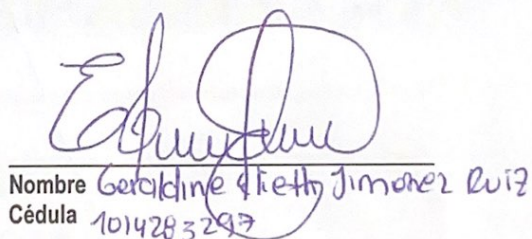 Nombre Geraldine Jimenez Ruiz
Cédula 1014283297